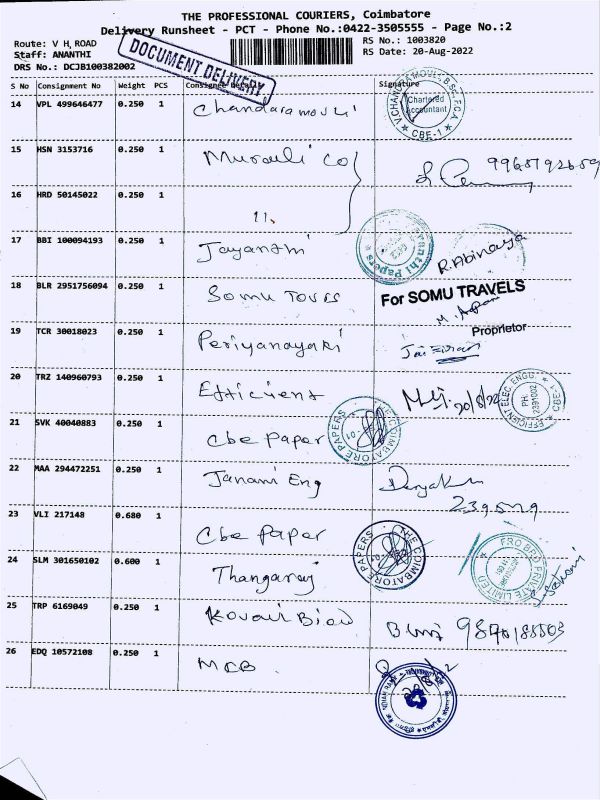 THE PROFESSIONAL COURIERS, Coimbatore
Delivery Runsheet - PCT - Phone No.:0422-3505555 - Page No.:2
Route: V H ROAD RS No.: 1003820
Staff: ANANTHI RS Date: 20-Aug-2022
DRS No.: DCJB100382002
DOCUMENT DELIVERY
S No Consignment No Weight PCS Consignee Signature
14 VPL 499646477 0.250 1 Chandaramouli
Chartered
Accountant
CBE-1
15 HSN 3153716 0.250 1 Murauli co
16 HRD 50145022 0.250 1 11.
17 BBI 100094193 0.250 1 Jayanthi Papers R. Abinaya
18 BLR 2951756094 0.250 1 Somu Tours For SOMU TRAVELS
Proprietor
19 TCR 30018023 0.250 1 Periyanayaki
20 TRZ 140960793 0.250 1 Efficient 20/8/22
EFFICIENT ELEC. ENGG. PH: 2391002 CBE-1
21 SVK 40040883 0.250 1 Cbe Paper THE COIMBATORE PAPERS
22 MAA 294472251 0.250 1 Janani Eng
23 VLI 217148 0.680 1 Cbe Paper THE COIMBATORE PAPERS
24 SLM 301650102 0.600 1 Thangaraj PRIVATE LIMITED
25 TRP 6169049 0.250 1 Kovai
26 EDQ 10572108 0.250 1 MCB